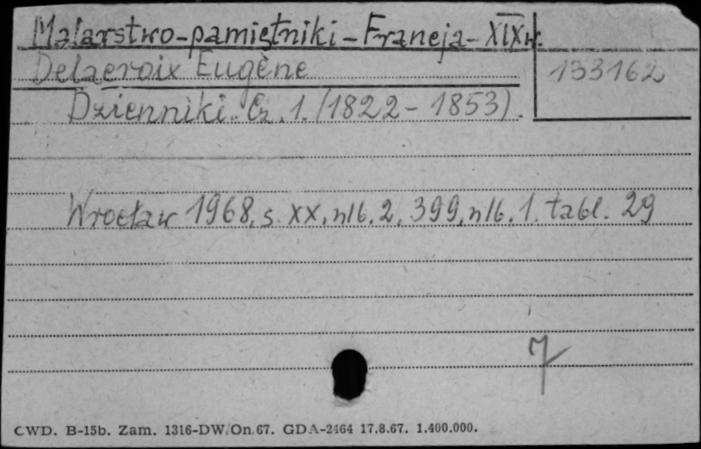 Malarstwo-pamiętniki-Francja-XIXw.
Delacroix Eugène
133162
Dzienniki. Cz. 1. (1822-1853).
Wrocław 1968, s. XX, nlb. 2, 399, nlb. 1. tabl. 29
CWD. B-15b. Zam. 1316-DW/On 67. GDA-2464 17.8.67. 1.400.000.